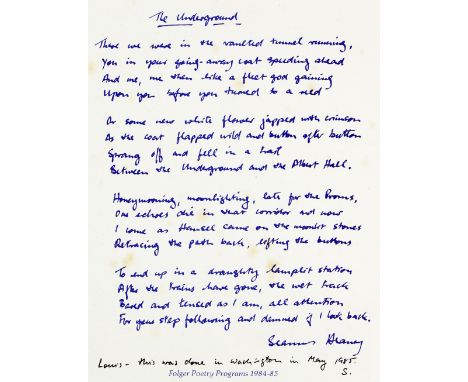 The Underground
There we were in the vaulted tunnel running,
You in your going-away coat speeding ahead
And me, me then like a fleet god gaining
Upon you before you turned to a reed
Or some new white flower japped with crimson
As the coat flapped wild and button after button
Sprang off and fell in a trail
Between the Underground and the Albert Hall.
Honeymooning, moonlighting, late for the Proms,
Our echoes die in that corridor and now
I come as Hansel came on the moonlit stones
Retracing the path back, lifting the buttons
To end up in a draughty lamplit station
After the trains have gone, the wet track
Bared and tensed as I am, all attention
For your step following and damned if I look back.
Seamus Heaney
Louis - this was done in Washington in May 1985.
S.
Folger Poetry Programs 1984-85